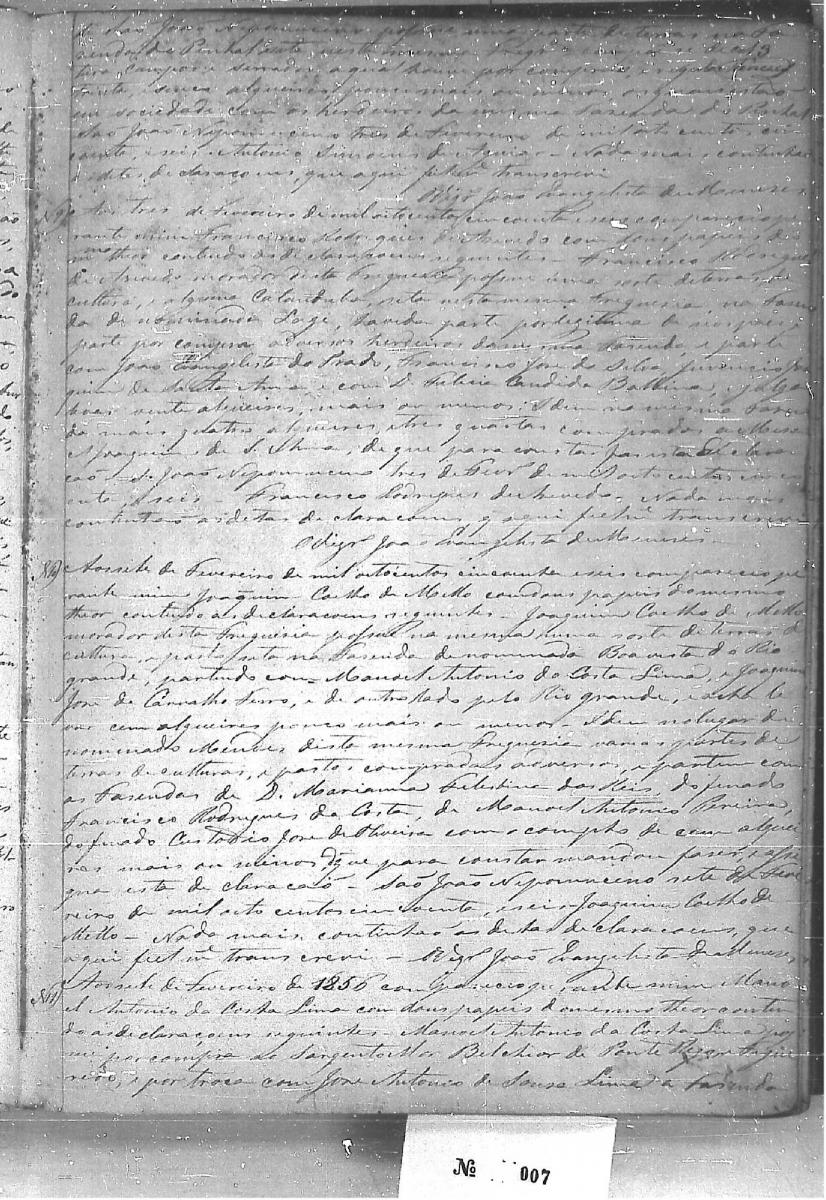 de São João Nepomuceno possue uma parte de terras na Fa
zenda do Pinhal sita nesta mesma Freg.ª
13
tanto, alqueires pouco mais ou menos
em sociedade com os herdeiros da mesma Fazenda do Pinhal
São João Nepomuceno tres de Fevereiro de mil oito centos cin
coenta, e seis Antonio Simoens de Aguiar - Nada mais continhão
as ditas declaraçoens, que aqui fielm.e transcrevi
O Vigr.º João Evangelista de Meneses
N 9) Aos tres de Fevereiro de mil oitocentos cincoenta e seis compareceo pe
rante mim Francisco Rodrigues de Asevedo com dous papeis do
mesmo theor contendo as declaraçoens seguintes - Francisco Rodrigues
de Asevedo morador desta Freguesia possue uma sorte de terras de
cultura, e alguma Catanduba, sita nesta mesma Freguesia, na Fasen
da denominada Lage, havida parte por legitima de seos pais,
parte por compra a diversos herdeiros da mesma Fasenda, e parte
com João Evangelista do Prado, Francisco José da Silva,
quim de Santa Anna, e com D. Felicia Candida
vinte alqueires, mais ou menos. Idem na mesma Fasen
da mais quatro alqueires, e tres quartas comprados a
Joaquim de S. Anna, de que para constar faz esta declara
ção - S. João Nepomuceno tres de Fevr.º de mil oitocentos cinco
enta, e seis - Francisco Rodrigues de Asevedo. Nada mais
continhão as ditas declaraçoens, q aqui fielm.e transcrevi
O Vigr.º João Evangelista de Meneses -
N10) Aos sete de Fevereiro de mil oitocentos cincoenta e seis compareceo pe
rante mim Joaquim Coelho de Mello com dous papeis do mesmo
theor contendo as declaraçoens seguintes - Joaquim Coelho de Mello
morador desta Freguesia possue na mesma huma sorte de terras de
cultura, e pasto sita na Fasenda denominada Boa vista do Rio
grande, partindo com Manoel Antonio da Costa Lima, e Joaquim
José de Carvalho Ferro, e de outro lado pelo Rio grande, e acha le
var cem alqueires pouco mais ou menos. Idem no lugar de
nominado Mendes desta mesma Freguesia varias partes de
terras de culturas, e pastos compradas a diversos, e partem com
as Fasendas de D. Marianna Felestina dos Reis, do finado
Francisco Rodrigues da Costa, de Manoel Antonio Pereira,
do finado Custodio José de Oliveira com o computo de cem alquei
res mais ou menos, dq que para constar mandou faser, e assi
gna esta declaração - São João Nepomuceno sete de Feve
reiro de mil oito centos cincoenta, e seis Joaquim Coelho de
Mello - Nada mais continhão as ditas declaraçoens, que
aqui fielm.e transcrevi - O Vigr.º João Evangelista de Meneses
N11) Aos sete de Fevereiro de 1856 compareceo perante mim Mano
el Antonio da Costa Lima com dous papeis do mesmo theor conten
do as declaraçoens seguintes - Manoel Antonio da Costa Lima pos
sue por compra ao Sargento Mor Belchior de Pontes Figue
redo, e por troca com José Antonio de Sousa Lima a Fasenda
Nº 007